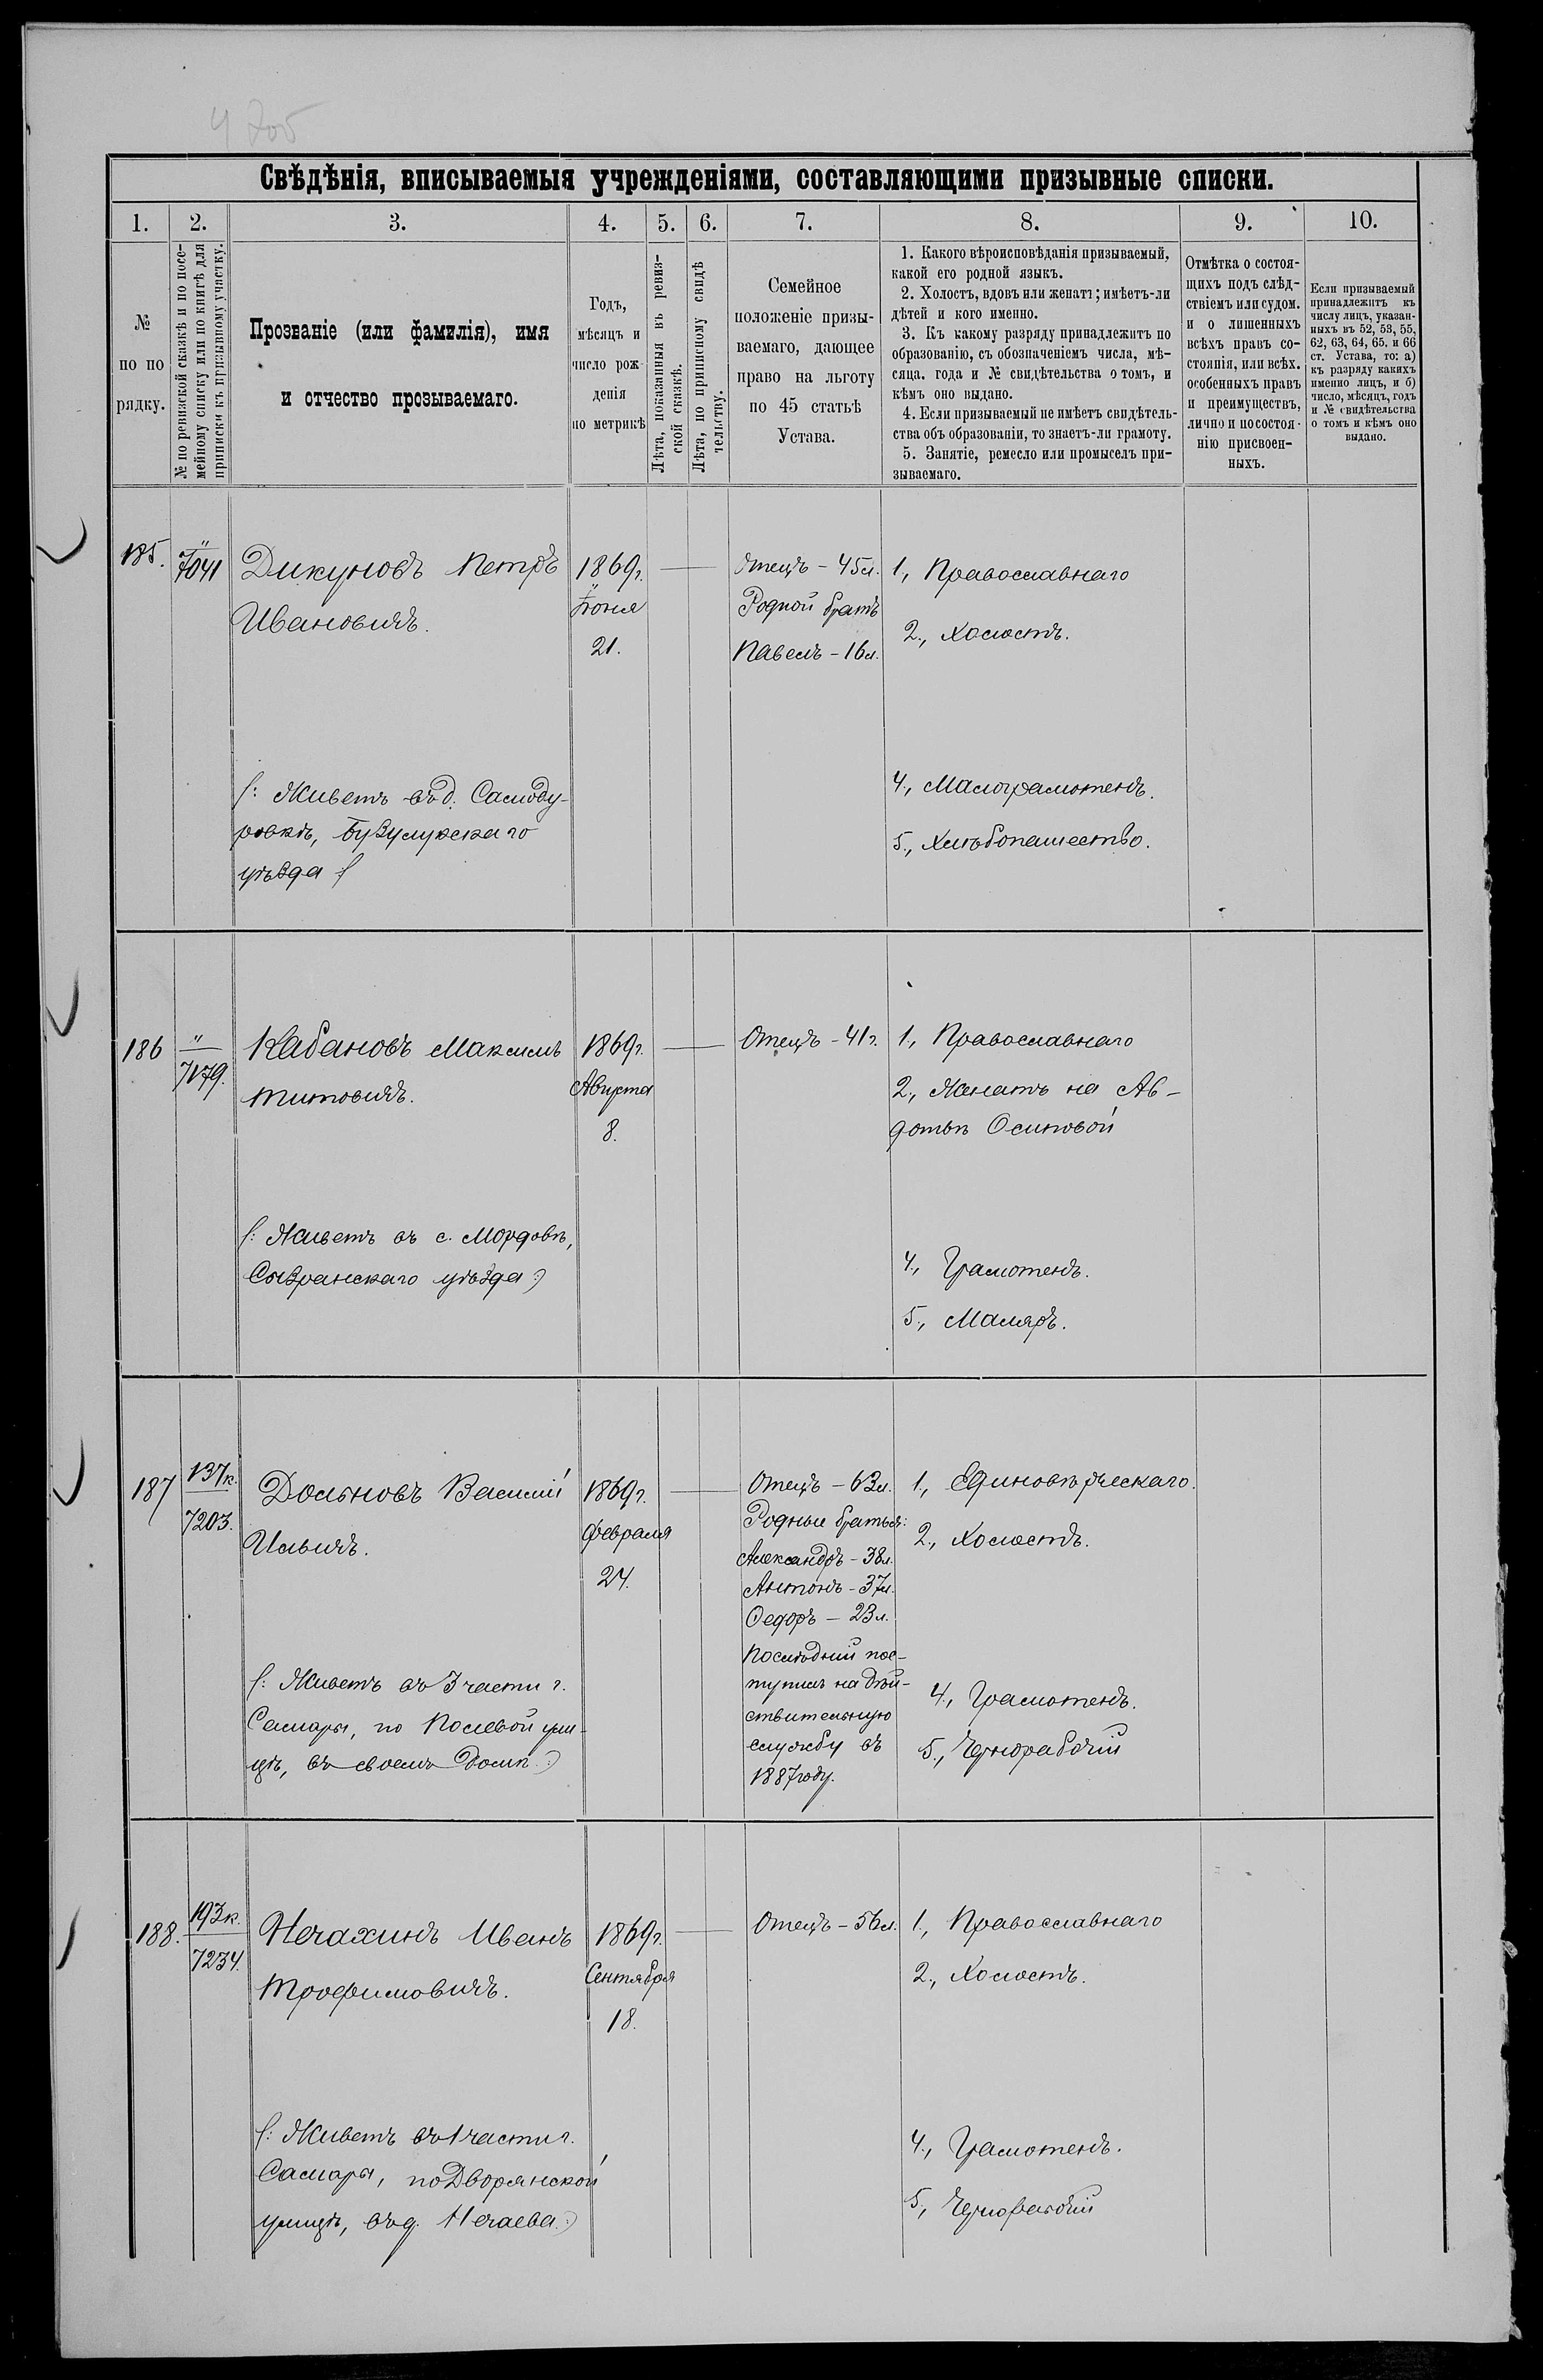 Свѣдѣнія, вписываемыя учрежденіями, составляющими призывные списки.
1. 2. 3. 4. 5. 6. 7. 8. 9. 10.
№
по по
рядку.
№ по ревизской сказкѣ и по посе-
мейному списку или по книгѣ для
приписки къ призывному участку.
Прозваніе (или фамилія), имя
и отчество прозываемаго.
Годъ,
мѣсяцъ и
число рож
денія
по метрикѣ
Лѣта, показанныя въ ревиз-
ской сказкѣ.
Лѣта, по приписному свидѣ
тельству.
Семейное
положеніе призы-
ваемаго, дающее
право на льготу
по 45 статьѣ
Устава.
1. Какого вѣроисповѣданія призываемый,
какой его родной языкъ.
2. Холостъ, вдовъ или женатъ; имѣетъ-ли
дѣтей и кого именно.
3. Къ какому разряду принадлежитъ по
образованію, съ обозначеніемъ числа, мѣ-
сяца. года и № свидѣтельства о томъ, и
кѣмъ оно выдано.
4. Если призываемый не имѣетъ свидѣтель-
ства объ образованіи, то знаетъ-ли грамоту.
5. Занятіе, ремесло или промыселъ при-
зываемаго.
Отмѣтка о состоя-
щихъ подъ слѣд-
ствіемъ или судом.
и о лишенныхъ
всѣхъ правъ со-
стоянія, или всѣх.
особенныхъ правъ
и преимуществъ,
лично и по состоя-
нію присвоен-
ныхъ.
Если призываемый
принадлежитъ къ
числу лицъ, указан-
ныхъ въ 52, 53, 55,
62, 63, 64, 65. и 66
ст. Устава, то: а)
къ разряду какихъ
именно лицъ, и б)
число, мѣсяцъ, годъ
и № свидѣтельства
о томъ и кѣмъ оно
выдано.
185.
"
7041
Дикуновъ Петръ
Ивановичъ.
(: Живетъ въ д. Самоду-
ровкѣ, Бузулукскаго
уѣзда :)
1869г.
Іюня
21.
Отецъ - 45л.
Родной братъ
Павелъ - 16л.
1., Православнаго
2., Холостъ.
4., Малограмотенъ.
5., Хлѣбопашество.
186
"
7179.
Кабановъ Максимъ
Титовичъ.
(: Живетъ въ с. Мордовѣ,
Сызранскаго уѣзда :)
1869г.
Августа
8.
Отецъ - 41г.
1., Православнаго
2., Женатъ на Ав-
дотьѣ Осиповой
4., Грамотенъ.
5., Маляръ.
187
137к.
7203.
Дольновъ Василій
Ильичъ.
(: Живетъ въ 3 части г.
Самары, по Полевой ули-
цѣ, въ своемъ домѣ :)
1869г.
Февраля
24.
Отецъ - 63л.
Родные братья:
Александръ - 38л.
Антонъ - 37л.
Ѳедоръ - 23л.
Послѣдній пос-
тупилъ на дѣй-
ствительную
службу въ
1887году.
1., Единовѣрческаго.
2., Холостъ.
4., Грамотенъ.
5., Чернорабочій
188.
193к.
7234.
Нечахинъ Иванъ
Трофимовичъ.
(: Живетъ въ 1 части г.
Самары, по Дворянской
улицѣ, въ д. Нечаева :)
1869г.
Сентября
18.
Отецъ - 56л.
1., Православнаго
2., Холостъ.
4., Грамотенъ.
5., Чернорабочій